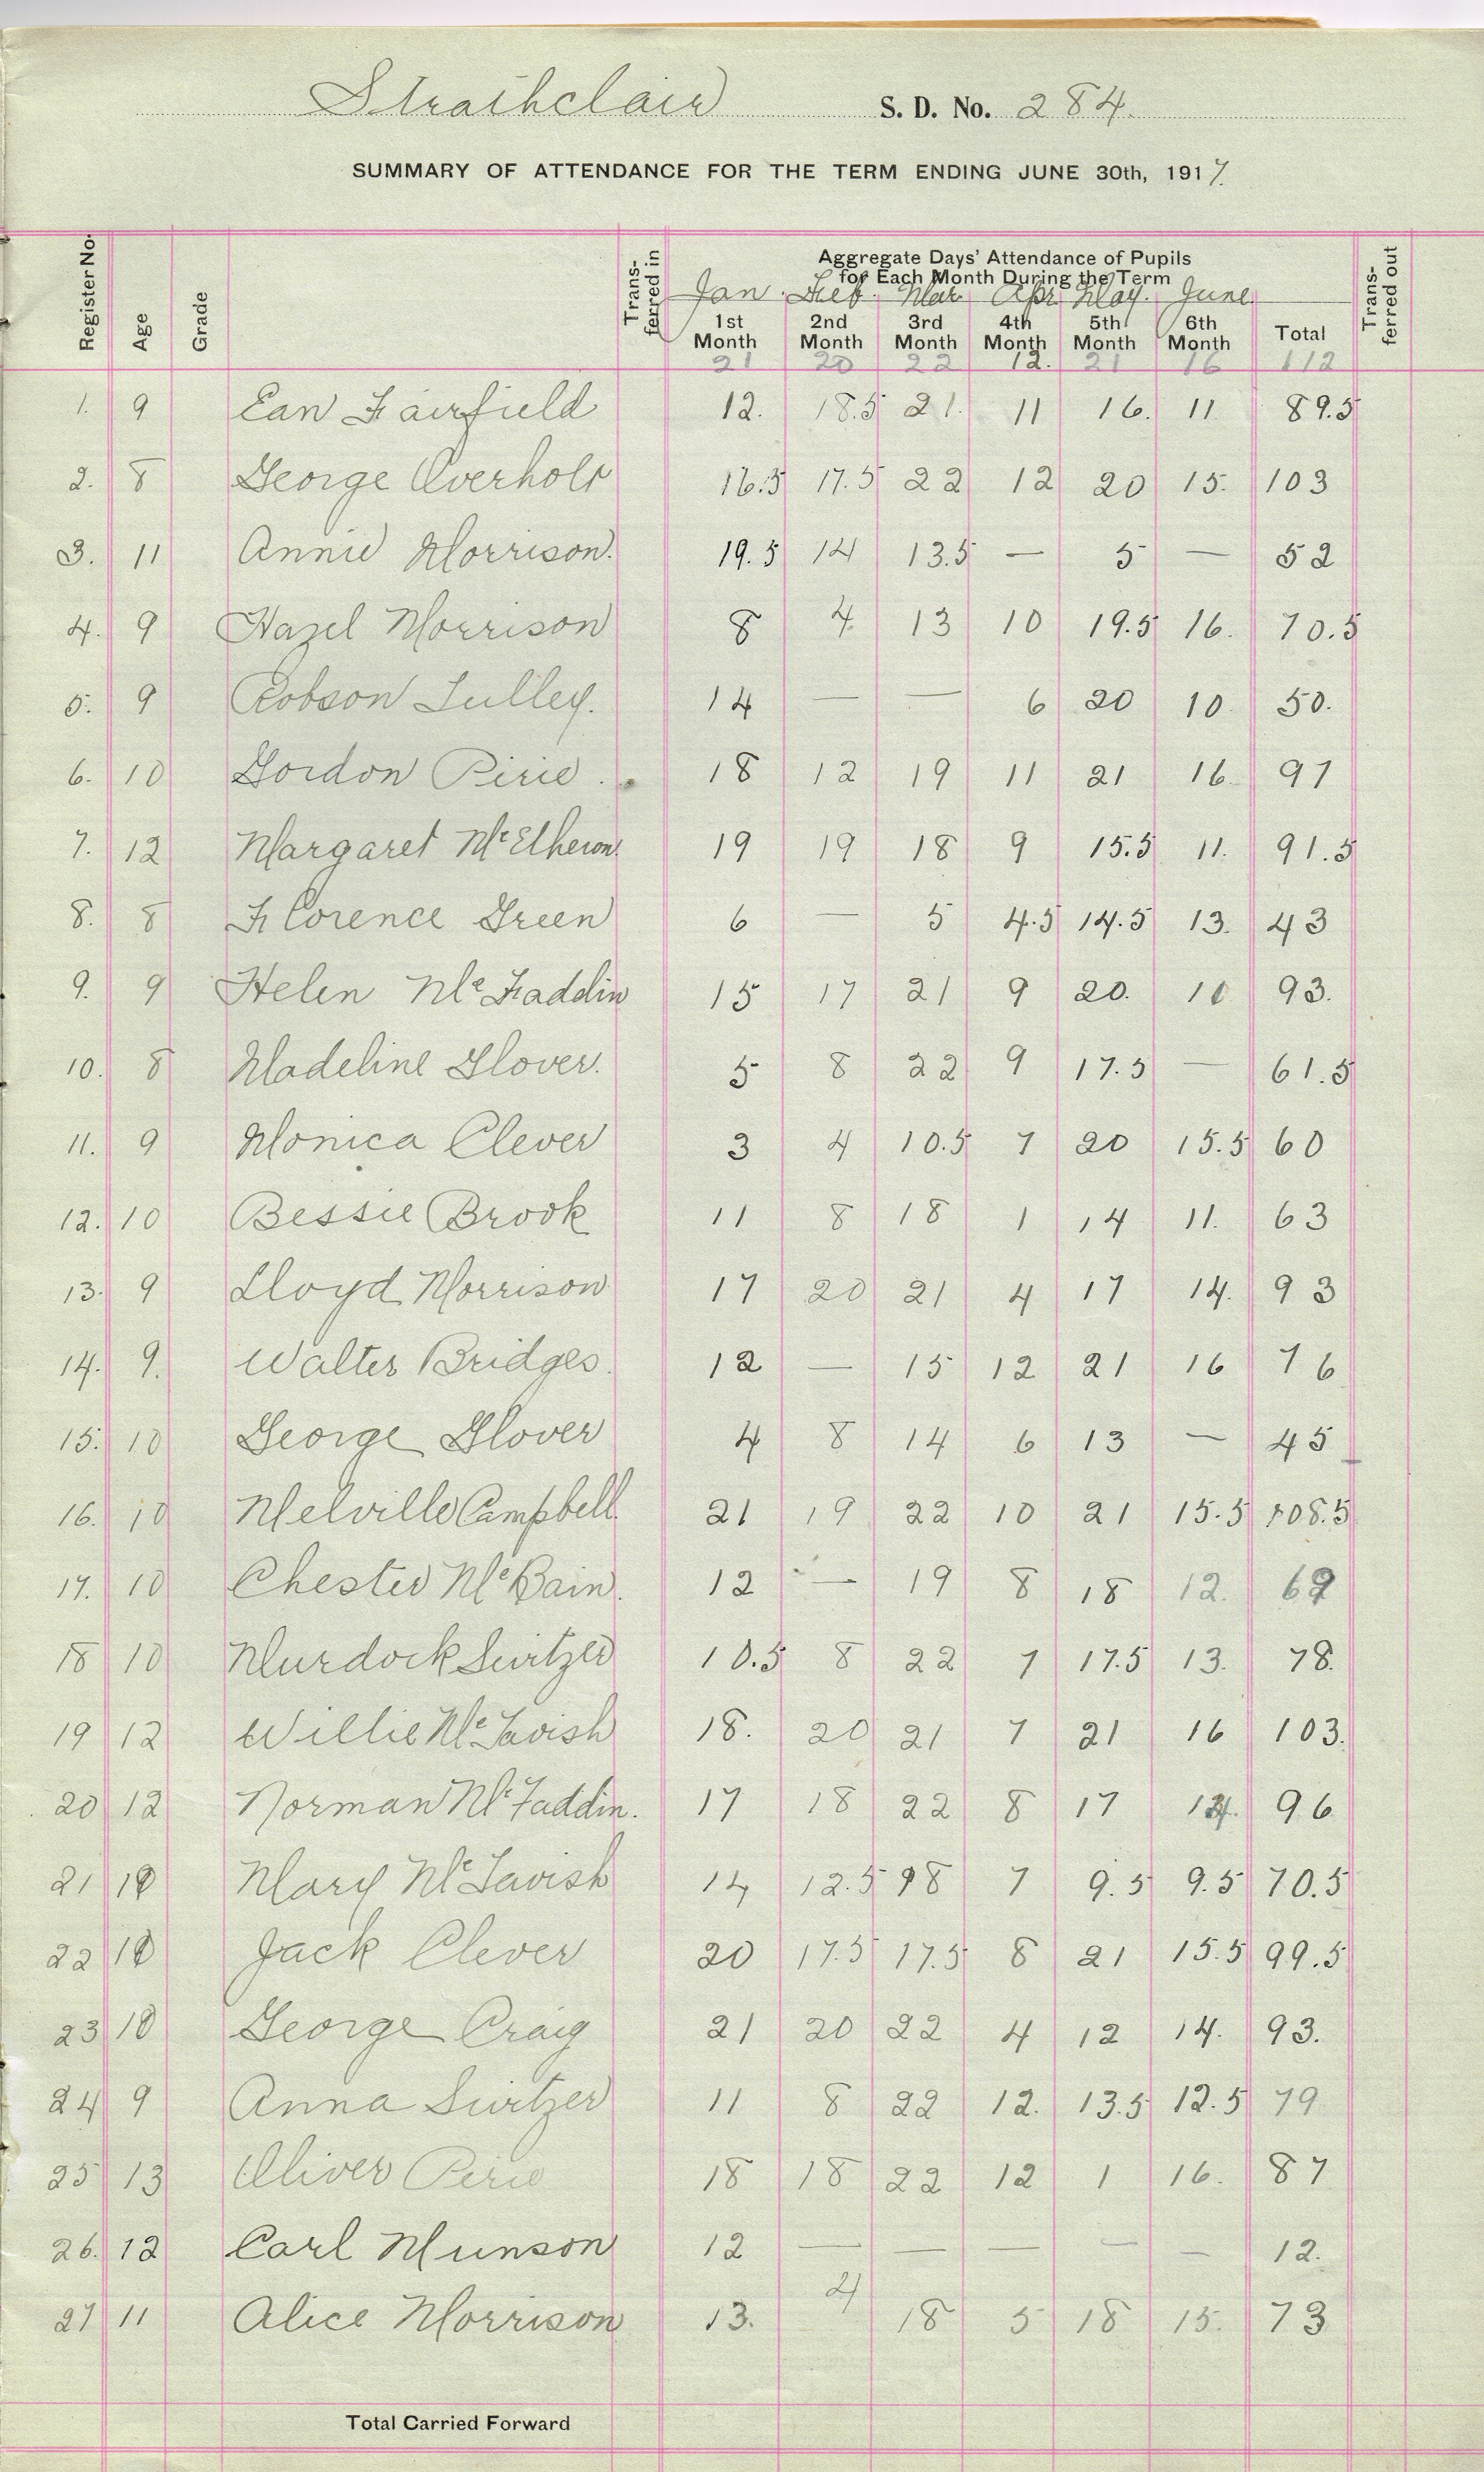 Strathclair S. D. No. 284.
SUMMARY OF ATTENDANCE FOR THE TERM ENDING JUNE 30th, 1917.
Register No. Age Grade Trans-ferred in Aggregate Days' Attendance of Pupils for Each Month During the Term Trans-ferred out
Jan. Feb. Mar. Apr. May. June
1st Month 2nd Month 3rd Month 4th Month 5th Month 6th Month Total
21 20 22 12. 21 16 112
1. 9 Ean Fairfield 12. 18.5 21. 11 16. 11 89.5
2. 8 George Overholt 16.5 17.5 22 12 20 15. 103
3. 11 Annie Morrison. 19.5 14 13.5 — 5 — 52
4. 9 Hazel Morrison 8 4 13 10 19.5 16. 70.5
5. 9 Robson Lulley. 14 — — 6 20 10 50.
6. 10 Gordon Pirie. 18 12 19 11 21 16. 97
7. 12 Margaret McElheron. 19 19 18 9 15.5 11. 91.5
8. 8 Florence Green 6 — 5 4.5 14.5 13. 43
9. 9 Helen McFaddin 15 17 21 9 20. 93.
10. 8 Madeline Glover. 5 8 22 9 17.5 — 61.5
11. 9 Monica Clever 3 4 10.5 7 20 15.5 60
12. 10 Bessie Brook 11 8 18 1 14 11. 63
13. 9 Lloyd Morrison 17 20 21 4 17 14. 93
14. 9. Walter Bridges. 12 — 15 12 21 16 76
15. 10 George Glover 4 8 14 6 13 — 45
16. 10 Melville Campbell. 21 19 22 10 21 15.5 108.5
17. 10 Chester McBain. 12 — 19 8 18 12. 69
18 10 Murdock Switzer 10.5 8 22 7 17.5 13. 78.
19 12 Willie McTavish 18. 20 21 7 21 16 103.
20 12 Norman McFaddin. 17 18 22 8 17 14. 96
21 10 Mary McTavish 14 12.5 18 7 9.5 9.5 70.5
22 10 Jack Clever 20 17.5 17.5 8 21 15.5 99.5
23 10 George Craig 21 20 22 4 12 14. 93.
24 9 Anna Switzer 11 8 22 12. 13.5 12.5 79
25 13 Oliver Pirie 18 18 22 12 1 16. 87
26. 12 Carl Munson 12 — — — — — 12.
27 11 Alice Morrison 13. 4 18 5 18 15. 73
Total Carried Forward